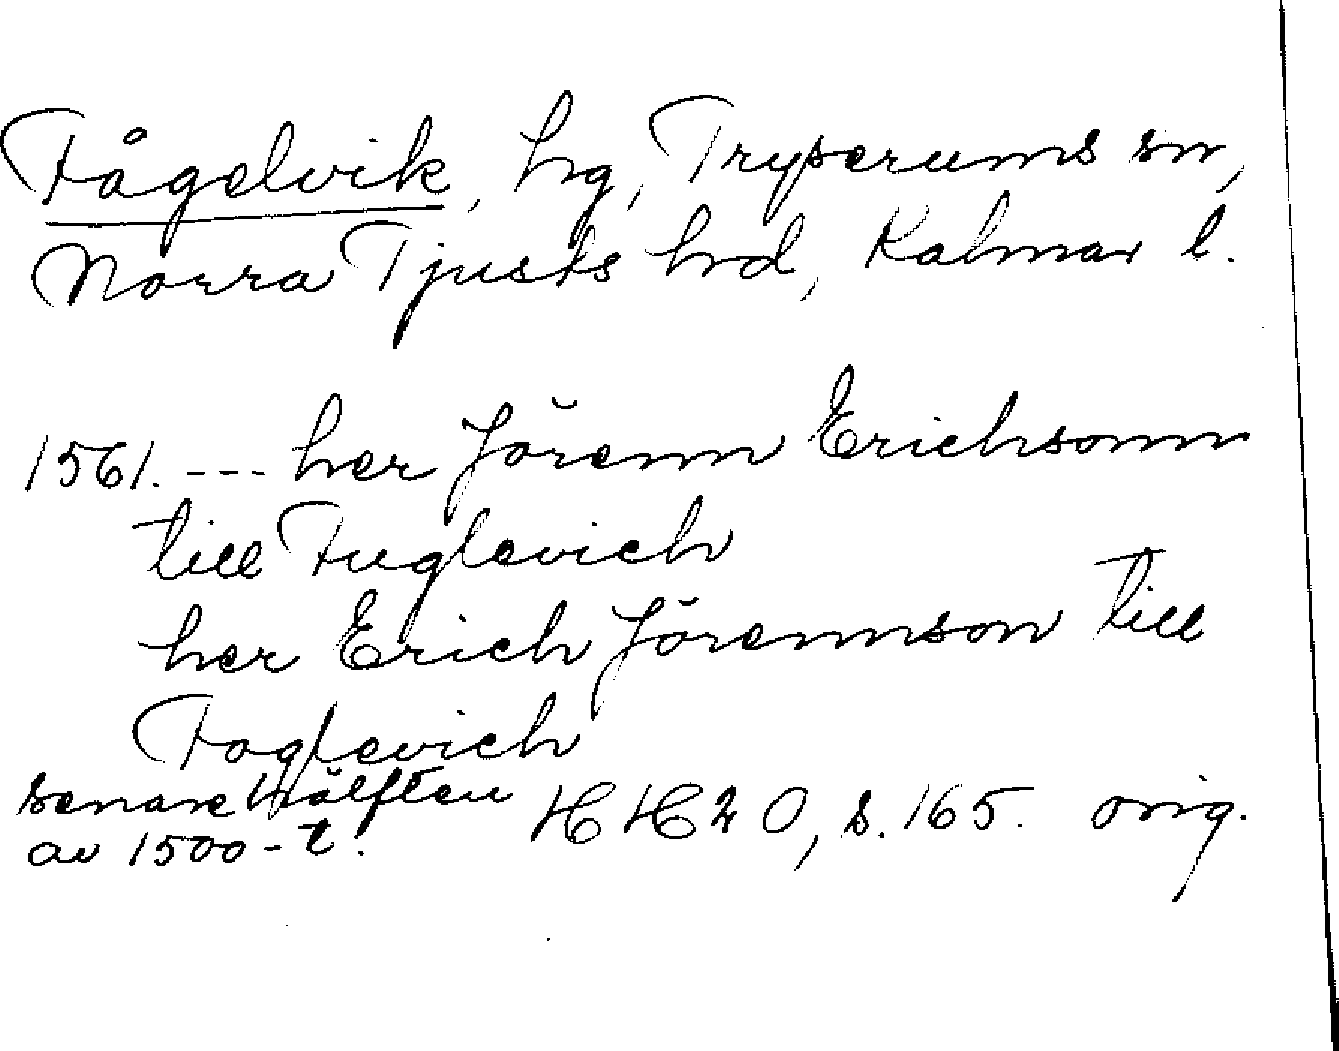 Fågelvik, hg, Tryserums sn,
Norra Tjusts hrd, Kalmar l.
1561. --- her Jörenn Erichsonn
till Fuglevich
her Erich Jörennson till
Foglevich
senare hälften
av 1500-t. HH 20, s. 165. orig.